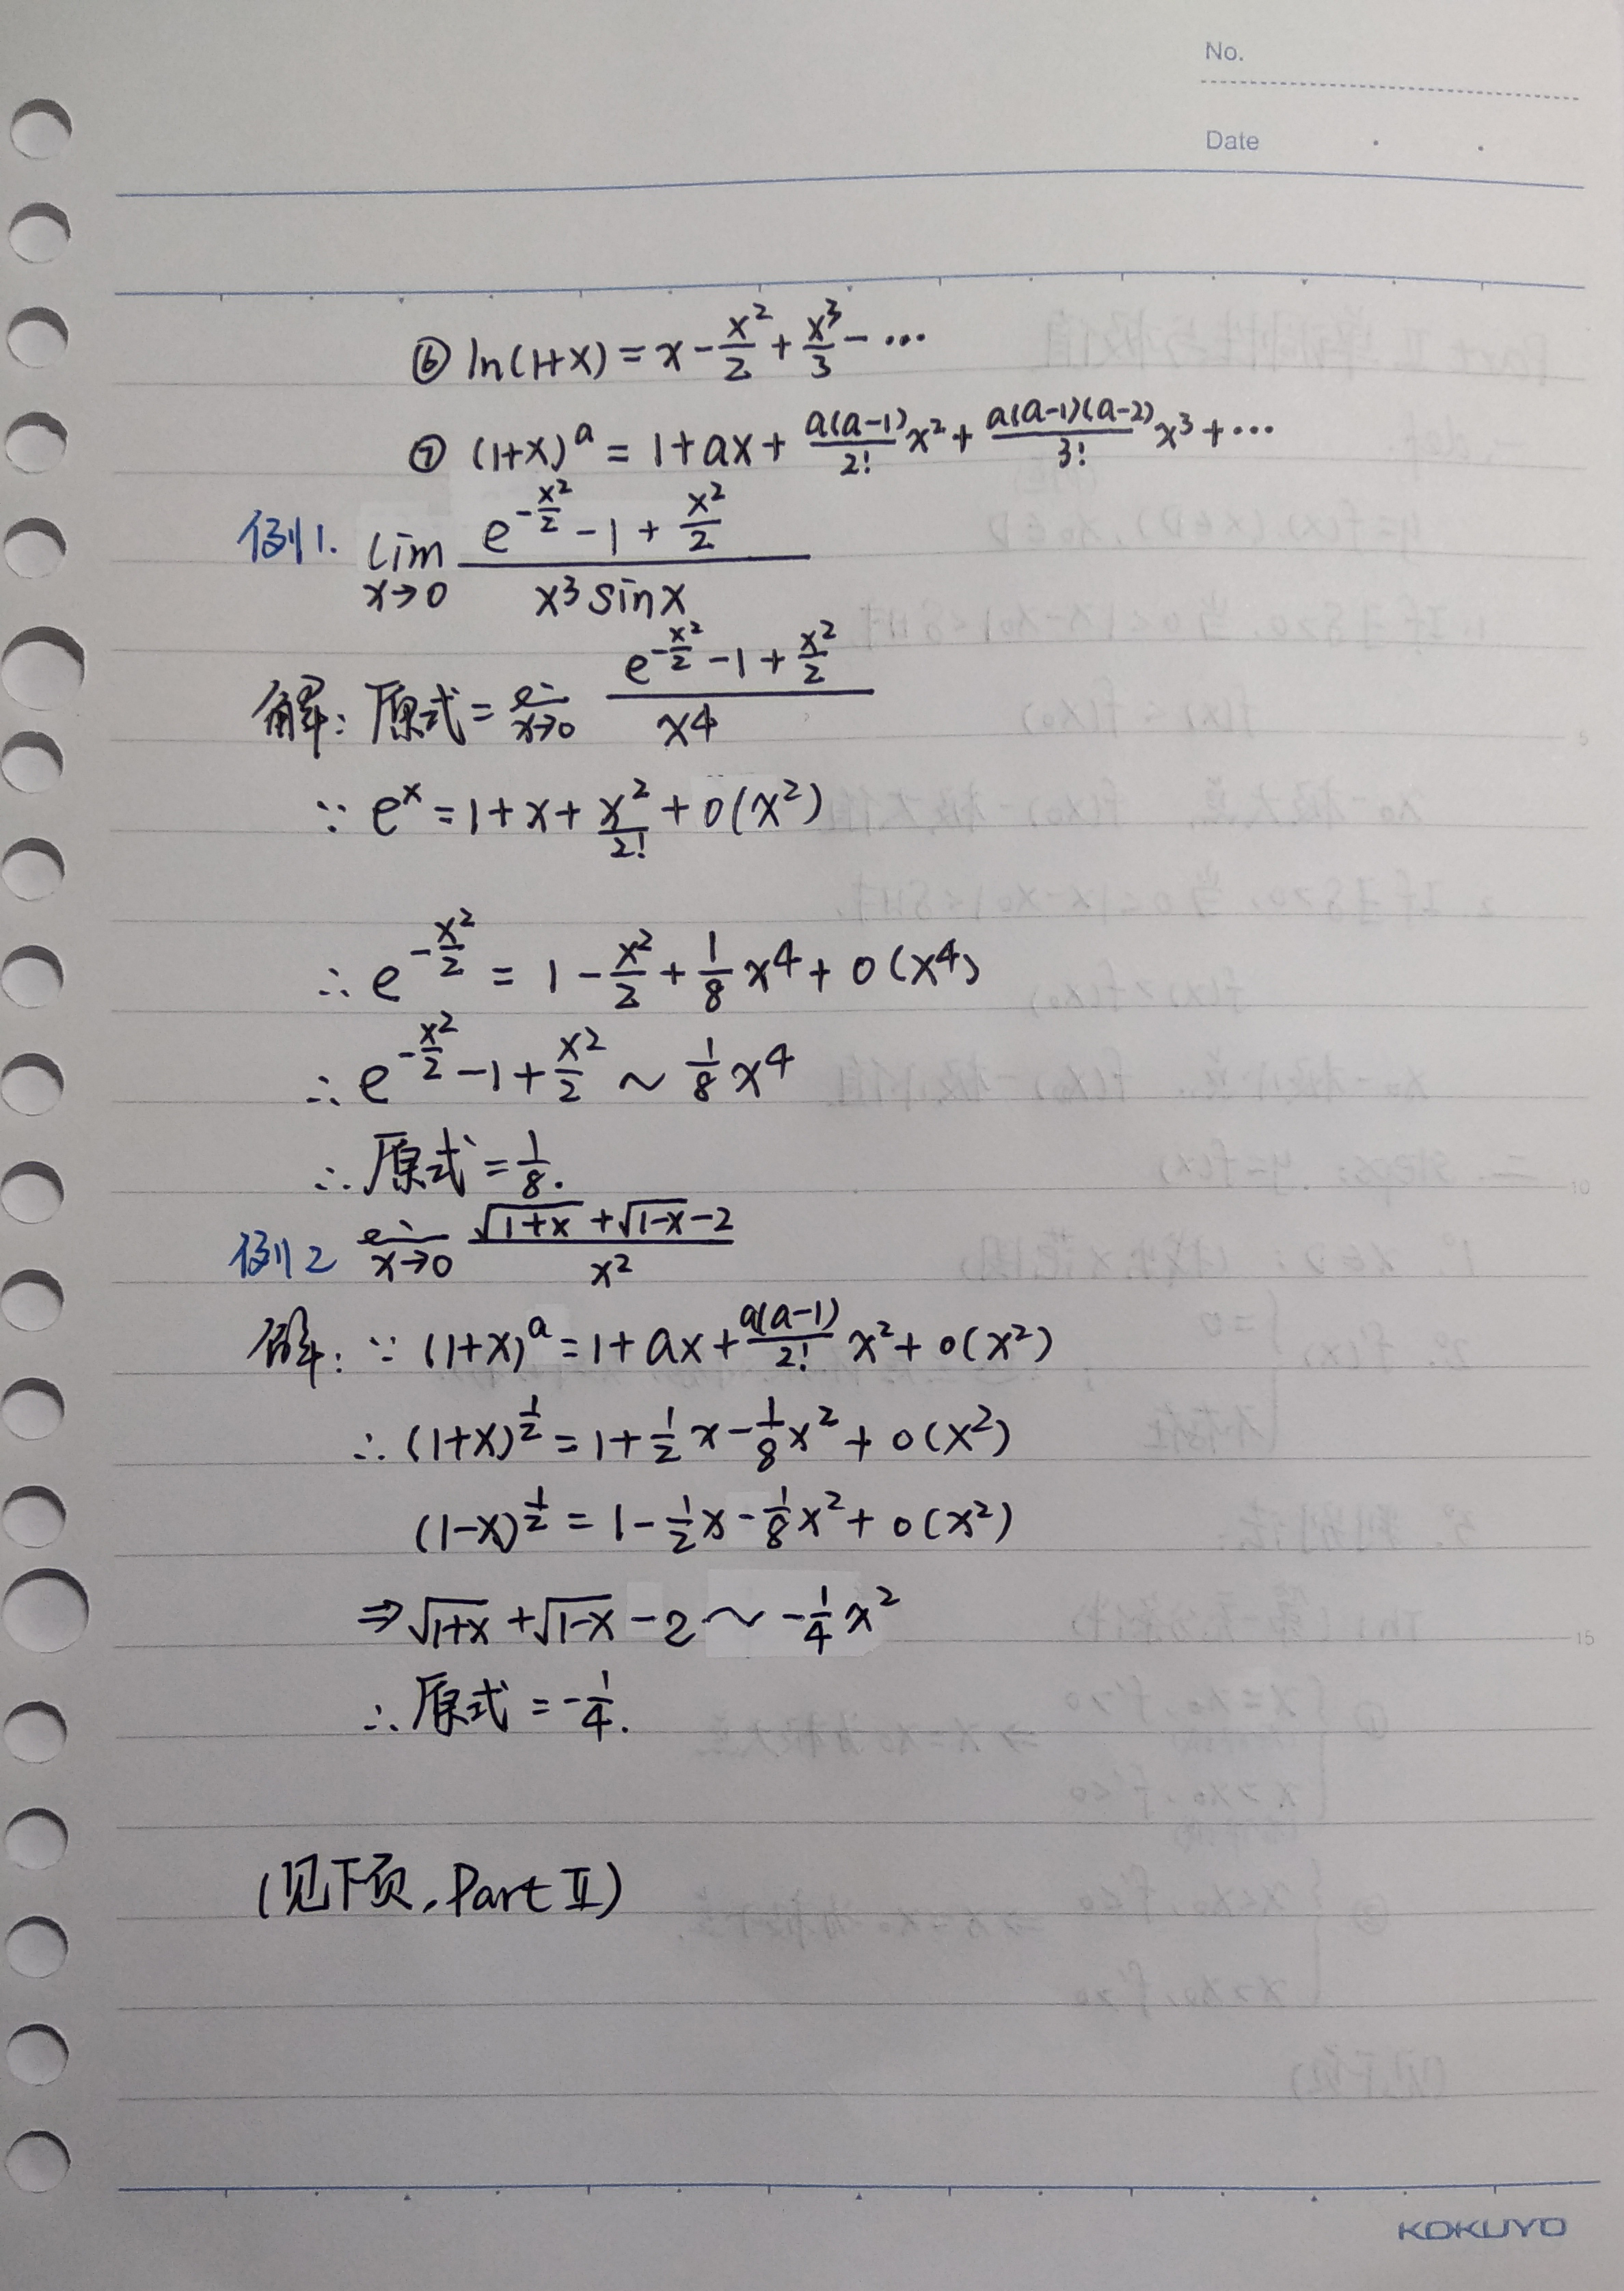 No.
Date
⑥ ln(1+x) = x - x²/2 + x³/3 - ⋯
⑦ (1+x)^a = 1 + ax + a(a-1)/2! x² + a(a-1)(a-2)/3! x³ + ⋯
例1. lim x→0 (e^(-x²/2) - 1 + x²/2)/(x³ sinx)
解: 原式 = lim x→0 (e^(-x²/2) - 1 + x²/2)/x⁴
∵ e^x = 1 + x + x²/2! + o(x²)
∴ e^(-x²/2) = 1 - x²/2 + 1/8 x⁴ + o(x⁴)
∴ e^(-x²/2) - 1 + x²/2 ~ 1/8 x⁴
∴ 原式 = 1/8.
例2 lim x→0 (√(1+x) + √(1-x) - 2)/x²
解: ∵ (1+x)^a = 1 + ax + a(a-1)/2! x² + o(x²)
∴ (1+x)^(1/2) = 1 + 1/2 x - 1/8 x² + o(x²)
(1-x)^(1/2) = 1 - 1/2 x - 1/8 x² + o(x²)
⇒ √(1+x) + √(1-x) - 2 ~ -1/4 x²
∴ 原式 = -1/4.
(见下页, Part Ⅱ)
KOKUYO